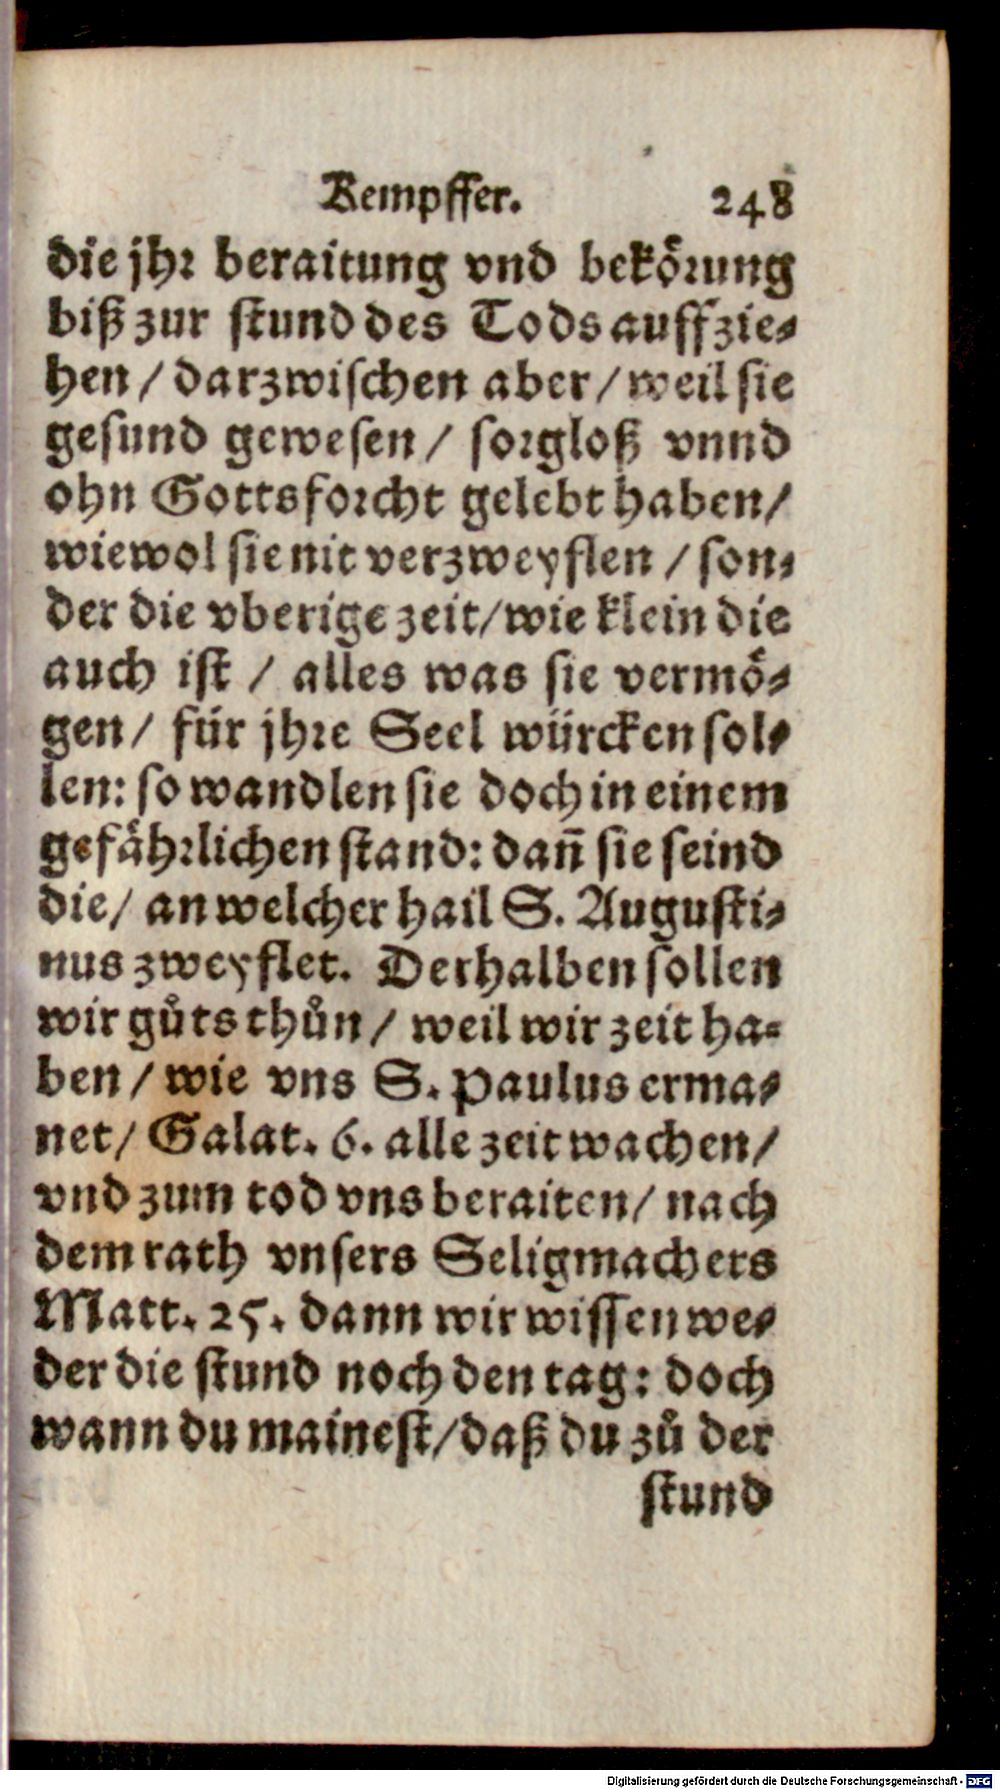 Kempffer. 248
die jhr beraitung vnd bekoͤrung
biß zur stund des Tods auffzie-
hen / darzwischen aber / weil sie
gesund gewesen / sorgloß vnnd
ohn Gottsforcht gelebt haben /
wiewol sie nit verzweyflen / son-
der die vberige zeit / wie klein die
auch ist / alles was sie vermoͤ-
gen / für jhre Seel würcken sol-
len: so wandlen sie doch in einem
gefaͤhrlichen stand: dañ sie seind
die / an welcher hail S. Augusti-
nus zweyflet. Derhalben sollen
wir gůts thůn / weil wir zeit ha-
ben / wie vns S. Paulus erma-
net / Galat. 6. alle zeit wachen /
vnd zum tod vns beraiten / nach
dem rath vnsers Seligmachers
Matt. 25. dann wir wissen we-
der die stund noch den tag: doch
wann du mainest / daß du zů der
stund
Digitalisierung gefördert durch die Deutsche Forschungsgemeinschaft - DFG